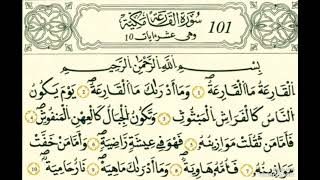 سورة القارعة مكية
وهي عشر ايات 10
101
بِسْمِ اللَّهِ الرَّحْمَٰنِ الرَّحِيمِ
الْقَارِعَةُ مَا الْقَارِعَةُ وَمَا أَدْرَاكَ مَا الْقَارِعَةُ يَوْمَ يَكُونُ
النَّاسُ كَالْفَرَاشِ الْمَبْثُوثِ وَتَكُونُ الْجِبَالُ كَالْعِهْنِ الْمَنْفُوشِ
فَأَمَّا مَنْ ثَقُلَتْ مَوَازِينُهُ فَهُوَ فِي عِيشَةٍ رَاضِيَةٍ وَأَمَّا مَنْ خَفَّتْ
مَوَازِينُهُ فَأُمُّهُ هَاوِيَةٌ وَمَا أَدْرَاكَ مَاهِيَهْ نَارٌ حَامِيَةٌ